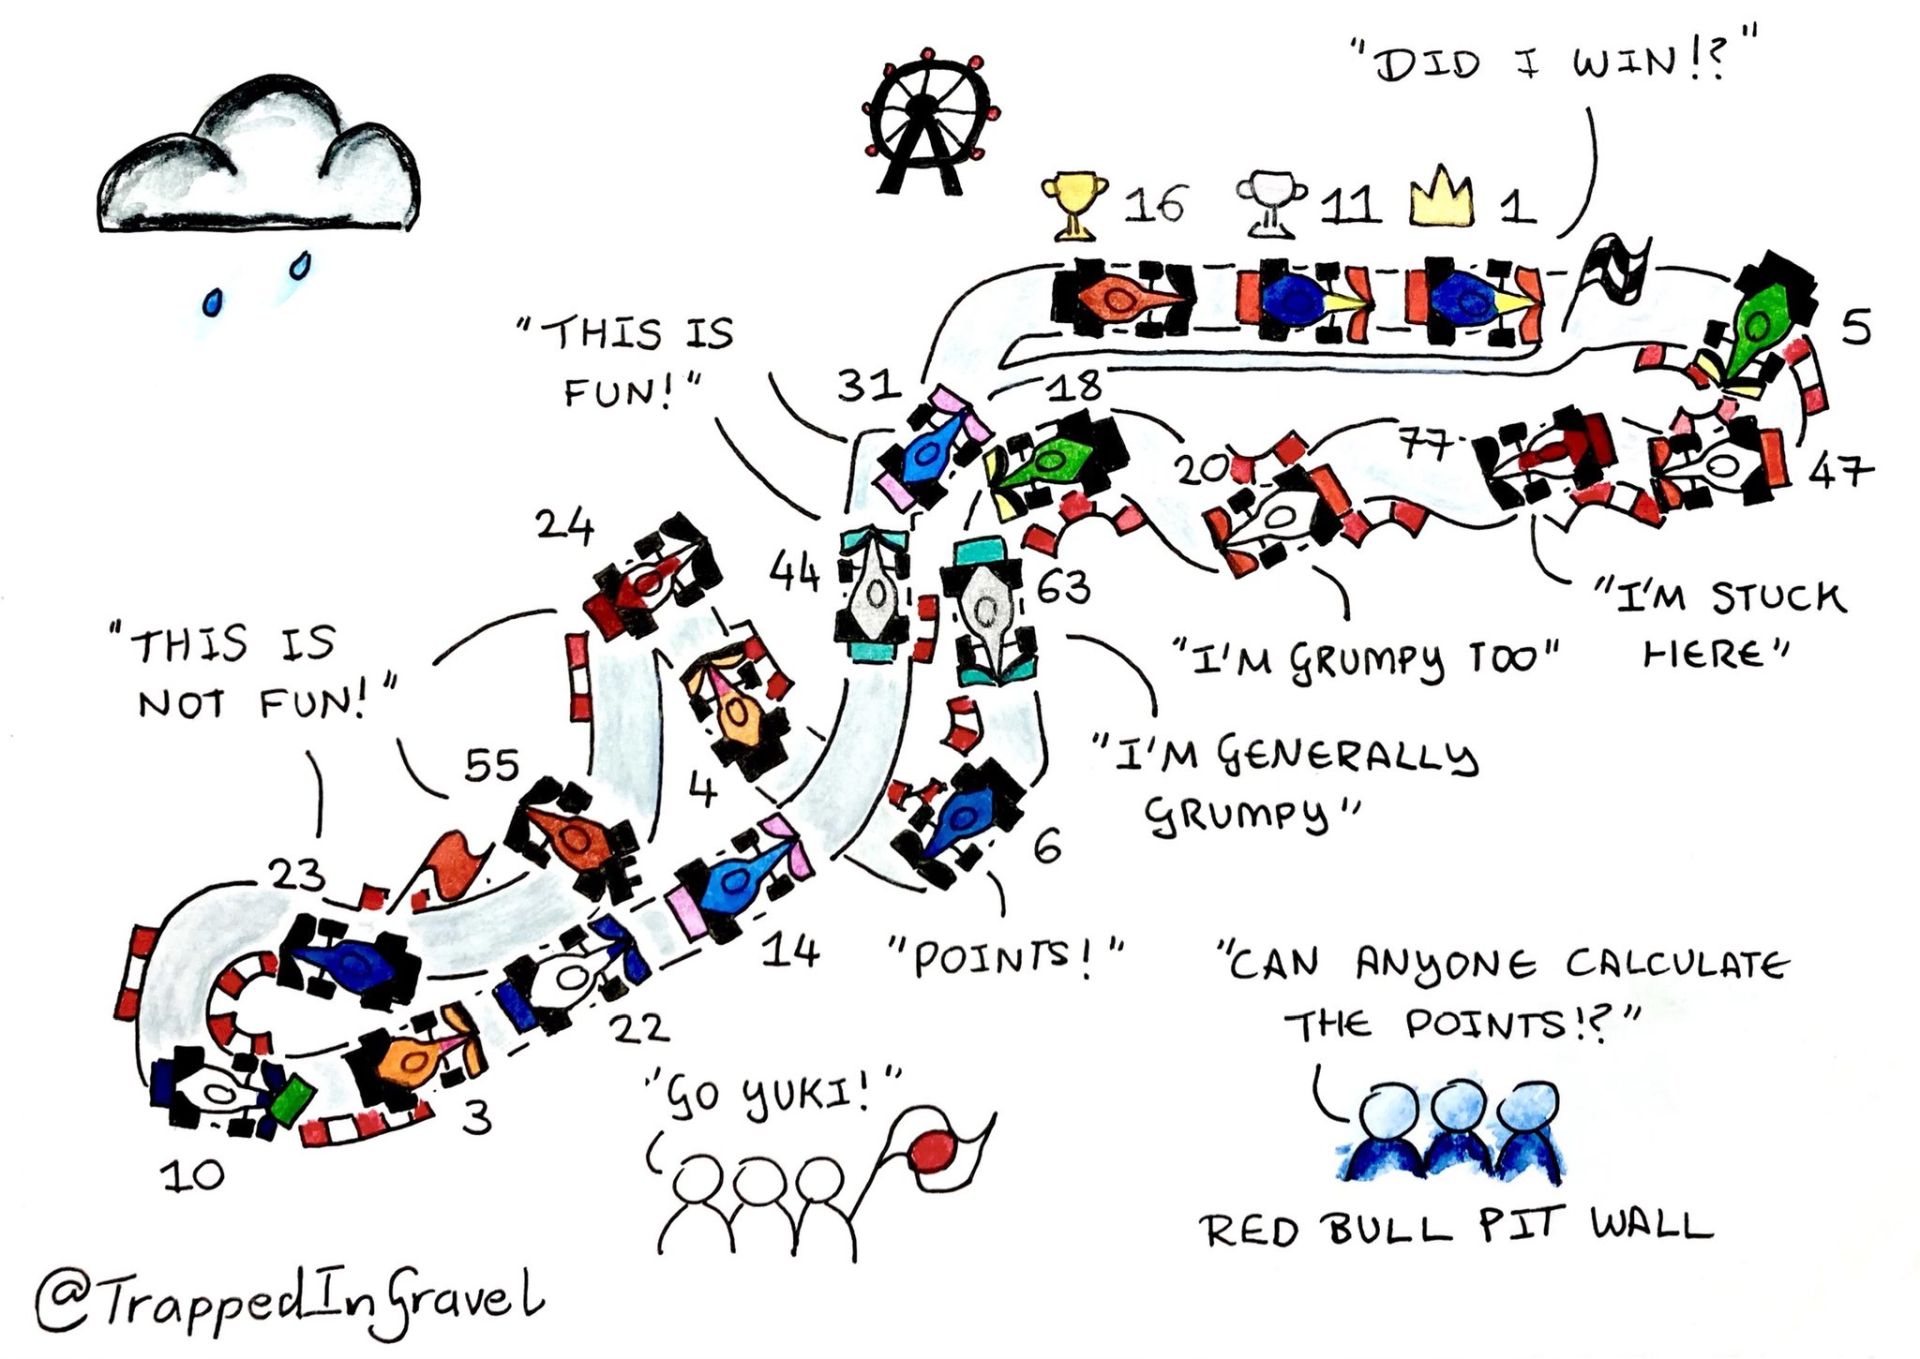 "DID I WIN!?"
16
11
1
5
"THIS IS
FUN!"
31
18
77
47
20
24
44
63
"I'M STUCK
HERE"
"I'M GRUMPY TOO"
"THIS IS
NOT FUN!"
"I'M GENERALLY
GRUMPY"
55
4
6
23
14
"POINTS!"
"CAN ANYONE CALCULATE
THE POINTS!?"
22
3
"GO YUKI!"
10
RED BULL PIT WALL
@TrappedInGravel